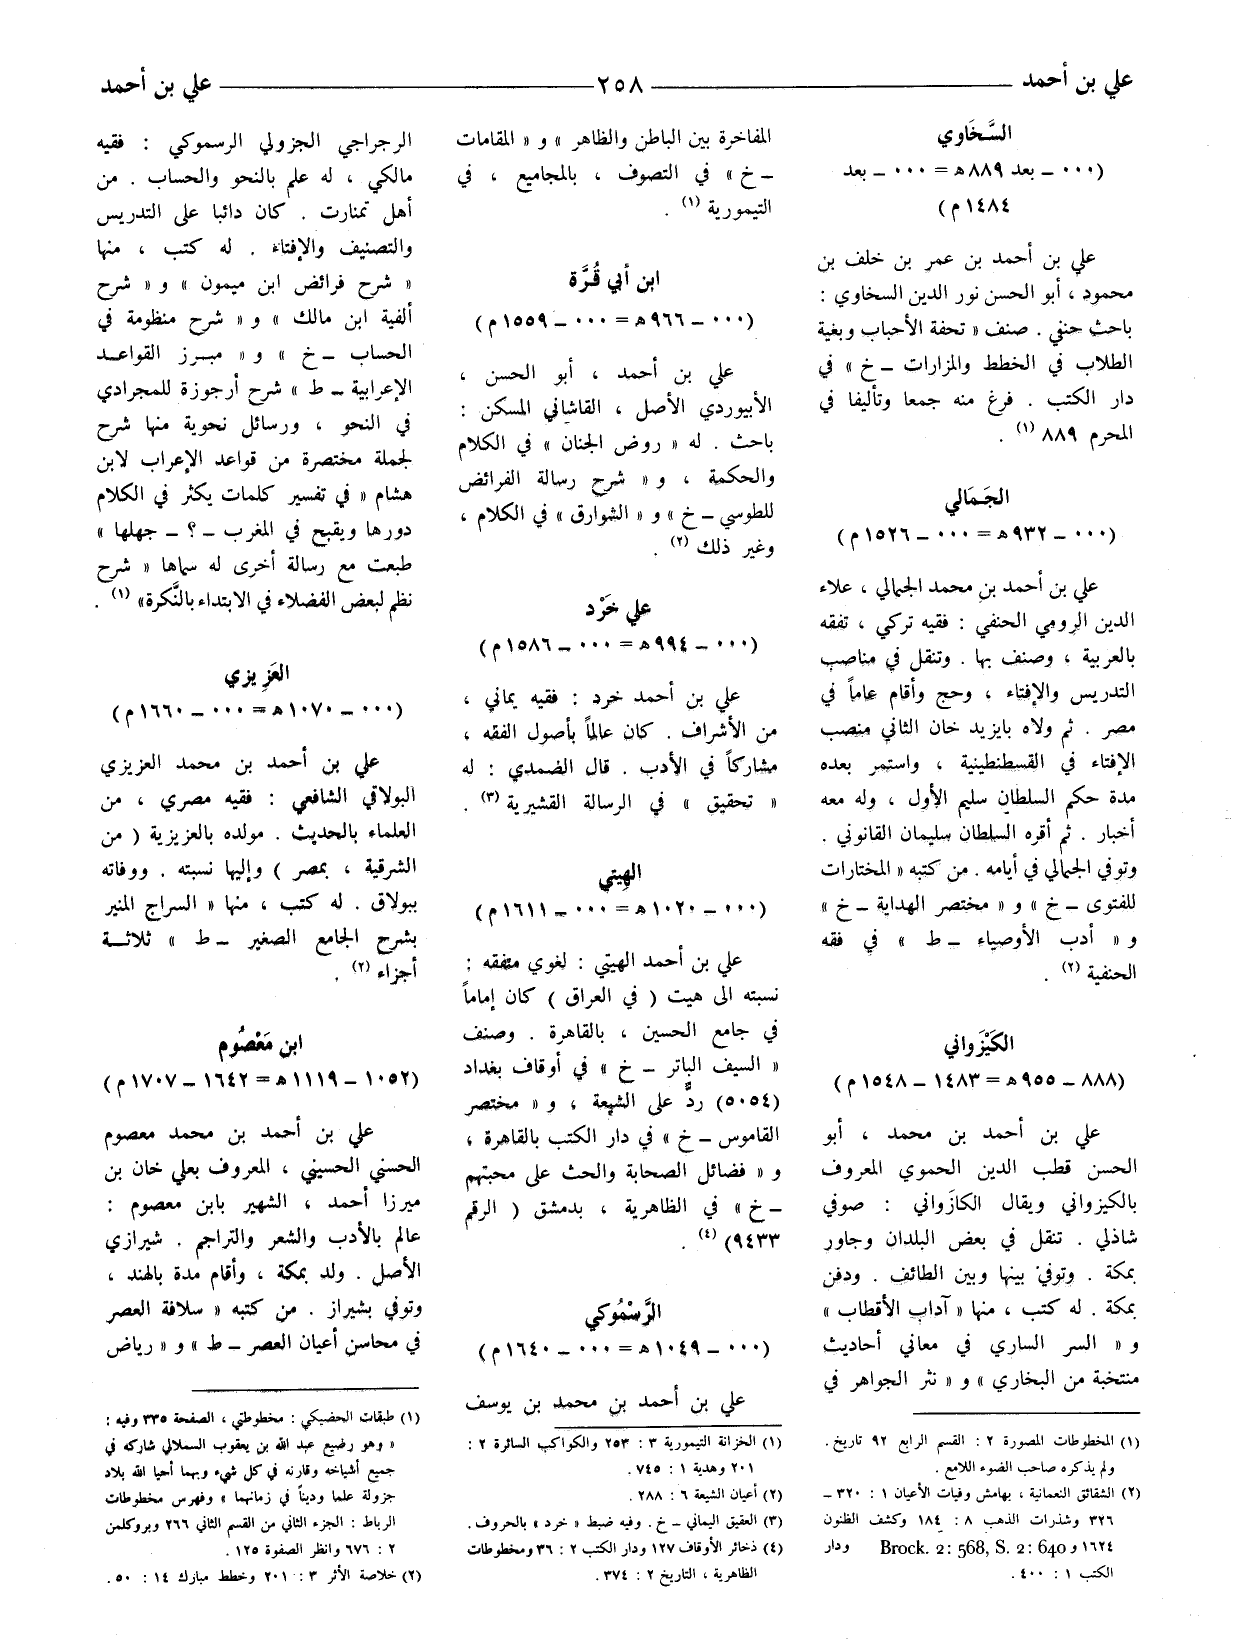 علي بن أحمد
٢٥٨
علي بن أحمد
السَّخَاوي
(٠٠٠ ــ بعد ٨٨٩ ه = ٠٠٠ ــ بعد
١٤٨٤ م)
علي بن أحمد بن عمر بن خلف بن
محمود ، أبو الحسن نور الدين السخاوي :
باحث حنفي . صنف « تحفة الأحباب وبغية
الطلاب في الخطط والمزارات ــ خ » في
دار الكتب . فرغ منه جمعا وتأليفا في
المحرم ٨٨٩ (١) .
الجَمَالي
(٠٠٠ ــ ٩٣٢ ه = ٠٠٠ ــ ١٥٢٦ م)
علي بن أحمد بن محمد الجمالي ، علاء
الدين الرومي الحنفي : فقيه تركي ، تفقه
بالعربية ، وصنف بها . وتنقل في مناصب
التدريس والإفتاء ، وحج وأقام عاماً في
مصر . ثم ولاه بايزيد خان الثاني منصب
الإفتاء في القسطنطينية ، واستمر بعده
مدة حكم السلطان سليم الأول ، وله معه
أخبار . ثم أقره السلطان سليمان القانوني .
وتوفي الجمالي في أيامه . من كتبه « المختارات
للفتوى ــ خ » و « مختصر الهداية ــ خ »
و « أدب الأوصياء ــ ط » في فقه
الحنفية (٢) .
الكَيْزَواني
(٨٨٨ ــ ٩٥٥ ه = ١٤٨٣ ــ ١٥٤٨ م)
علي بن أحمد بن محمد ، أبو
الحسن قطب الدين الحموي المعروف
بالكيزواني ويقال الكازَواني : صوفي
شاذلي . تنقل في بعض البلدان وجاور
بمكة . وتوفي بينها وبين الطائف . ودفن
بمكة . له كتب ، منها « آداب الأقطاب »
و « السر الساري في معاني أحاديث
منتخبة من البخاري » و « نثر الجواهر في
(١) المخطوطات المصورة ٢ : القسم الرابع ٩٢ تاريخ .
ولم يذكره صاحب الضوء اللامع .
(٢) الشقائق النعمانية ، بهامش وفيات الأعيان ١ : ٣٢٠ ــ
٣٢٦ وشذرات الذهب ٨ : ١٨٤ وكشف الظنون
١٦٢٤ و Brock. 2: 568, S. 2: 640 ودار
الكتب ١ : ٤٠٠ .
المفاخرة بين الباطن والظاهر » و « المقامات
ــ خ » في التصوف ، بالمجاميع ، في
التيمورية (١) .
ابن أبي قُرَّة
(٠٠٠ ــ ٩٦٦ ه = ٠٠٠ ــ ١٥٥٩ م)
علي بن أحمد ، أبو الحسن ،
الأبيوردي الأصل ، القاشاني المسكن :
باحث . له « روض الجنان » في الكلام
والحكمة ، و « شرح رسالة الفرائض
للطوسي ــ خ » و « الشوارق » في الكلام ،
وغير ذلك (٢) .
علي خَرْد
(٠٠٠ ــ ٩٩٤ ه = ٠٠٠ ــ ١٥٨٦ م)
علي بن أحمد خرد : فقيه يماني ،
من الأشراف . كان عالماً بأصول الفقه ،
مشاركاً في الأدب . قال الضمدي : له
« تحقيق » في الرسالة القشيرية (٣) .
الهِيتي
(٠٠٠ ــ ١٠٢٠ ه = ٠٠٠ ــ ١٦١١ م)
علي بن أحمد الهيتي : لغوي متفقه :
نسبته الى هيت ( في العراق ) كان إماماً
في جامع الحسين ، بالقاهرة . وصنف
« السيف الباتر ــ خ » في أوقاف بغداد
(٥٠٥٤) ردٌّ على الشيعة ، و « مختصر
القاموس ــ خ » في دار الكتب بالقاهرة ،
و « فضائل الصحابة والحث على محبتهم
ــ خ » في الظاهرية ، بدمشق ( الرقم
٩٤٣٣) (٤) .
الرَّسْمُوكي
(٠٠٠ ــ ١٠٤٩ ه = ٠٠٠ ــ ١٦٤٠ م)
علي بن أحمد بن محمد بن يوسف
(١) الخزانة التيمورية ٣ : ٢٥٣ والكواكب السائرة ٢ :
٢٠١ وهدية ١ : ٧٤٥ .
(٢) أعيان الشيعة ٦ : ٢٨٨ .
(٣) العقيق اليماني ــ خ . وفيه ضبط « خرد » بالحروف .
(٤) ذخائر الأوقاف ١٢٧ ودار الكتب ٢ : ٣٦ ومخطوطات
الظاهرية ، التاريخ ٢ : ٣٧٤ .
الرجراجي الجزولي الرسموكي : فقيه
مالكي ، له علم بالنحو والحساب . من
أهل تمنارت . كان دائبا على التدريس
والتصنيف والإفتاء . له كتب ، منها
« شرح فرائض ابن ميمون » و « شرح
ألفية ابن مالك » و « شرح منظومة في
الحساب ــ خ » و « مبرز القواعد
الإعرابية ــ ط » شرح أرجوزة للمجرادي
في النحو ، ورسائل نحوية منها شرح
لجملة مختصرة من قواعد الإعراب لابن
هشام « في تفسير كلمات يكثر في الكلام
دورها ويقبح في المغرب ــ ؟ ــ جهلها »
طبعت مع رسالة أخرى له سماها « شرح
نظم لبعض الفضلاء في الابتداء بالنَّكرة» (١) .
العَزِيزي
(٠٠٠ ــ ١٠٧٠ ه = ٠٠٠ ــ ١٦٦٠ م)
علي بن أحمد بن محمد العزيزي
البولاقي الشافعي : فقيه مصري ، من
العلماء بالحديث . مولده بالعزيزية ( من
الشرقية ، بمصر ) وإليها نسبته . ووفاته
ببولاق . له كتب ، منها « السراج المنير
بشرح الجامع الصغير ــ ط » ثلاثة
أجزاء (٢) .
ابن مَعْصُوم
(١٠٥٢ ــ ١١١٩ ه = ١٦٤٢ ــ ١٧٠٧ م)
علي بن أحمد بن محمد معصوم
الحسني الحسيني ، المعروف بعلي خان بن
ميرزا أحمد ، الشهير بابن معصوم :
عالم بالأدب والشعر والتراجم . شيرازي
الأصل . ولد بمكة ، وأقام مدة بالهند ،
وتوفي بشيراز . من كتبه « سلافة العصر
في محاسن أعيان العصر ــ ط » و « رياض
(١) طبقات الحضيكي : مخطوطتي ، الصفحة ٣٣٥ وفيه :
« وهو رضيع عبد الله بن يعقوب السملالي شاركه في
جميع أشياخه وقارنه في كل شيء وبهما أحيا الله بلاد
جزولة علما وديناً في زمانهما » وفهرس مخطوطات
الرباط : الجزء الثاني من القسم الثاني ٢٦٦ وبروكلمن
٢ : ٦٧٦ وانظر الصفوة ١٢٥ .
(٢) خلاصة الأثر ٣ : ٢٠١ وخطط مبارك ١٤ : ٥٠ .